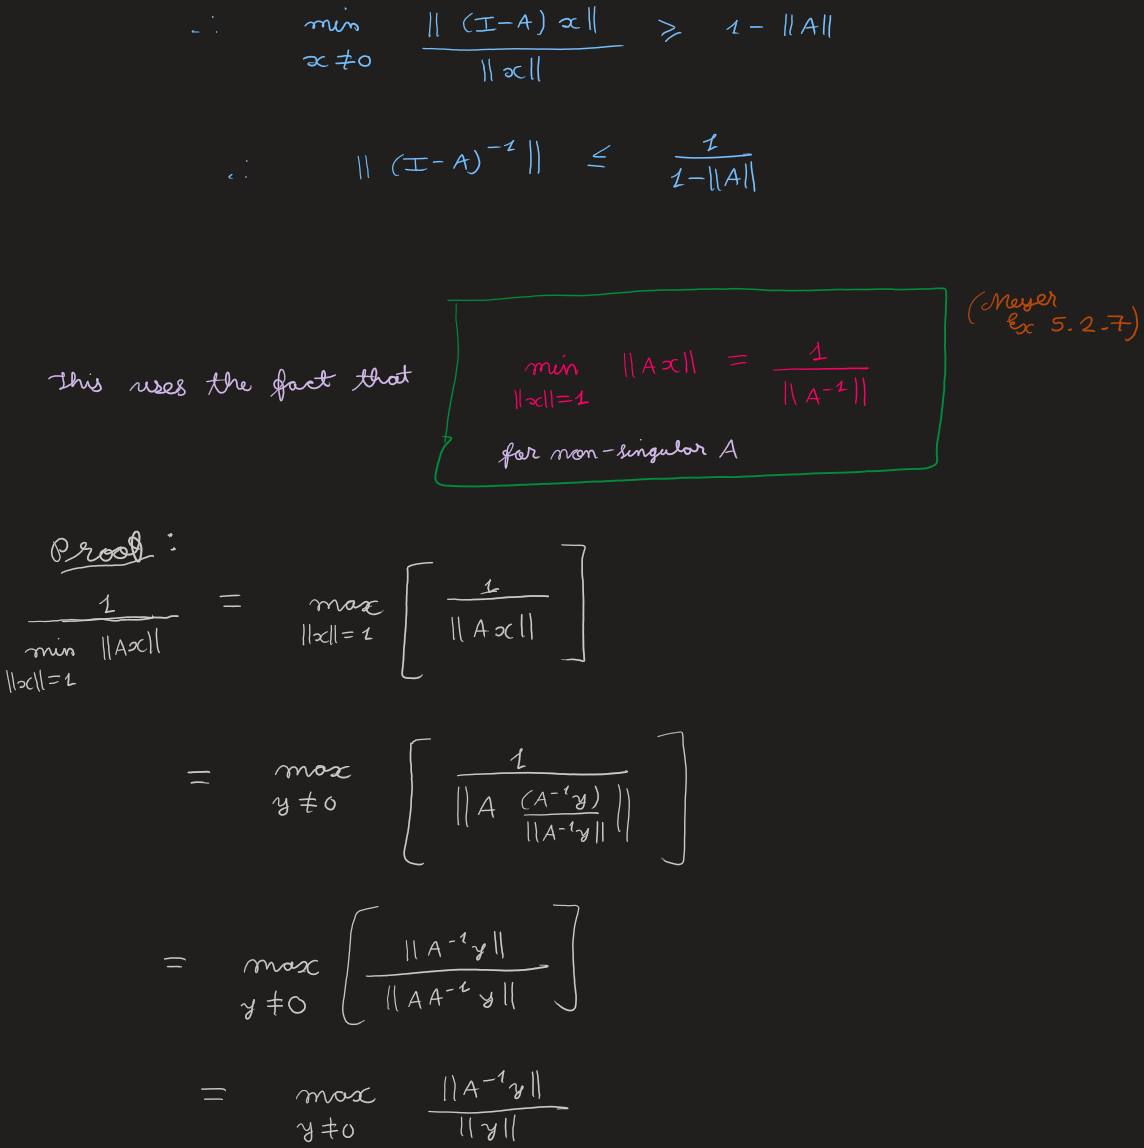 ∴ min_{x≠0} ‖(I-A)x‖ / ‖x‖ ⩾ 1 - ‖A‖
∴ ‖(I-A)^{-1}‖ ≤ 1 / (1-‖A‖)
(Meyer
Ex 5.2.7)
This uses the fact that min_{‖x‖=1} ‖Ax‖ = 1 / ‖A^{-1}‖
for non-singular A
Proof :
1 / (min_{‖x‖=1} ‖Ax‖) = max_{‖x‖=1} [ 1 / ‖Ax‖ ]
= max_{y≠0} [ 1 / ‖A (A^{-1}y) / ‖A^{-1}y‖‖ ]
= max_{y≠0} [ ‖A^{-1}y‖ / ‖AA^{-1}y‖ ]
= max_{y≠0} ‖A^{-1}y‖ / ‖y‖